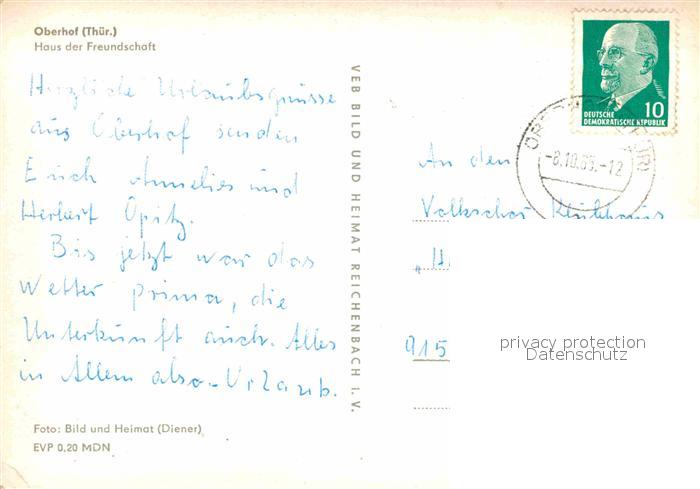 Oberhof (Thür.)
Haus der Freundschaft
Herzliche Urlaubsgrüsse
aus Oberhof senden
Euch Annelies und
Herbert Opitz.
Bis jetzt war das
Wetter prima, die
Unterkunft auch. Alles
in Allem also - Urlaub.
Foto: Bild und Heimat (Diener)
EVP 0,20 MDN
VEB BILD UND HEIMAT REICHENBACH I. V.
10
DEUTSCHE
DEMOKRATISCHE REPUBLIK
-8.10.65.-12
An den
Volkschor
„H
915
privacy protection
Datenschutz